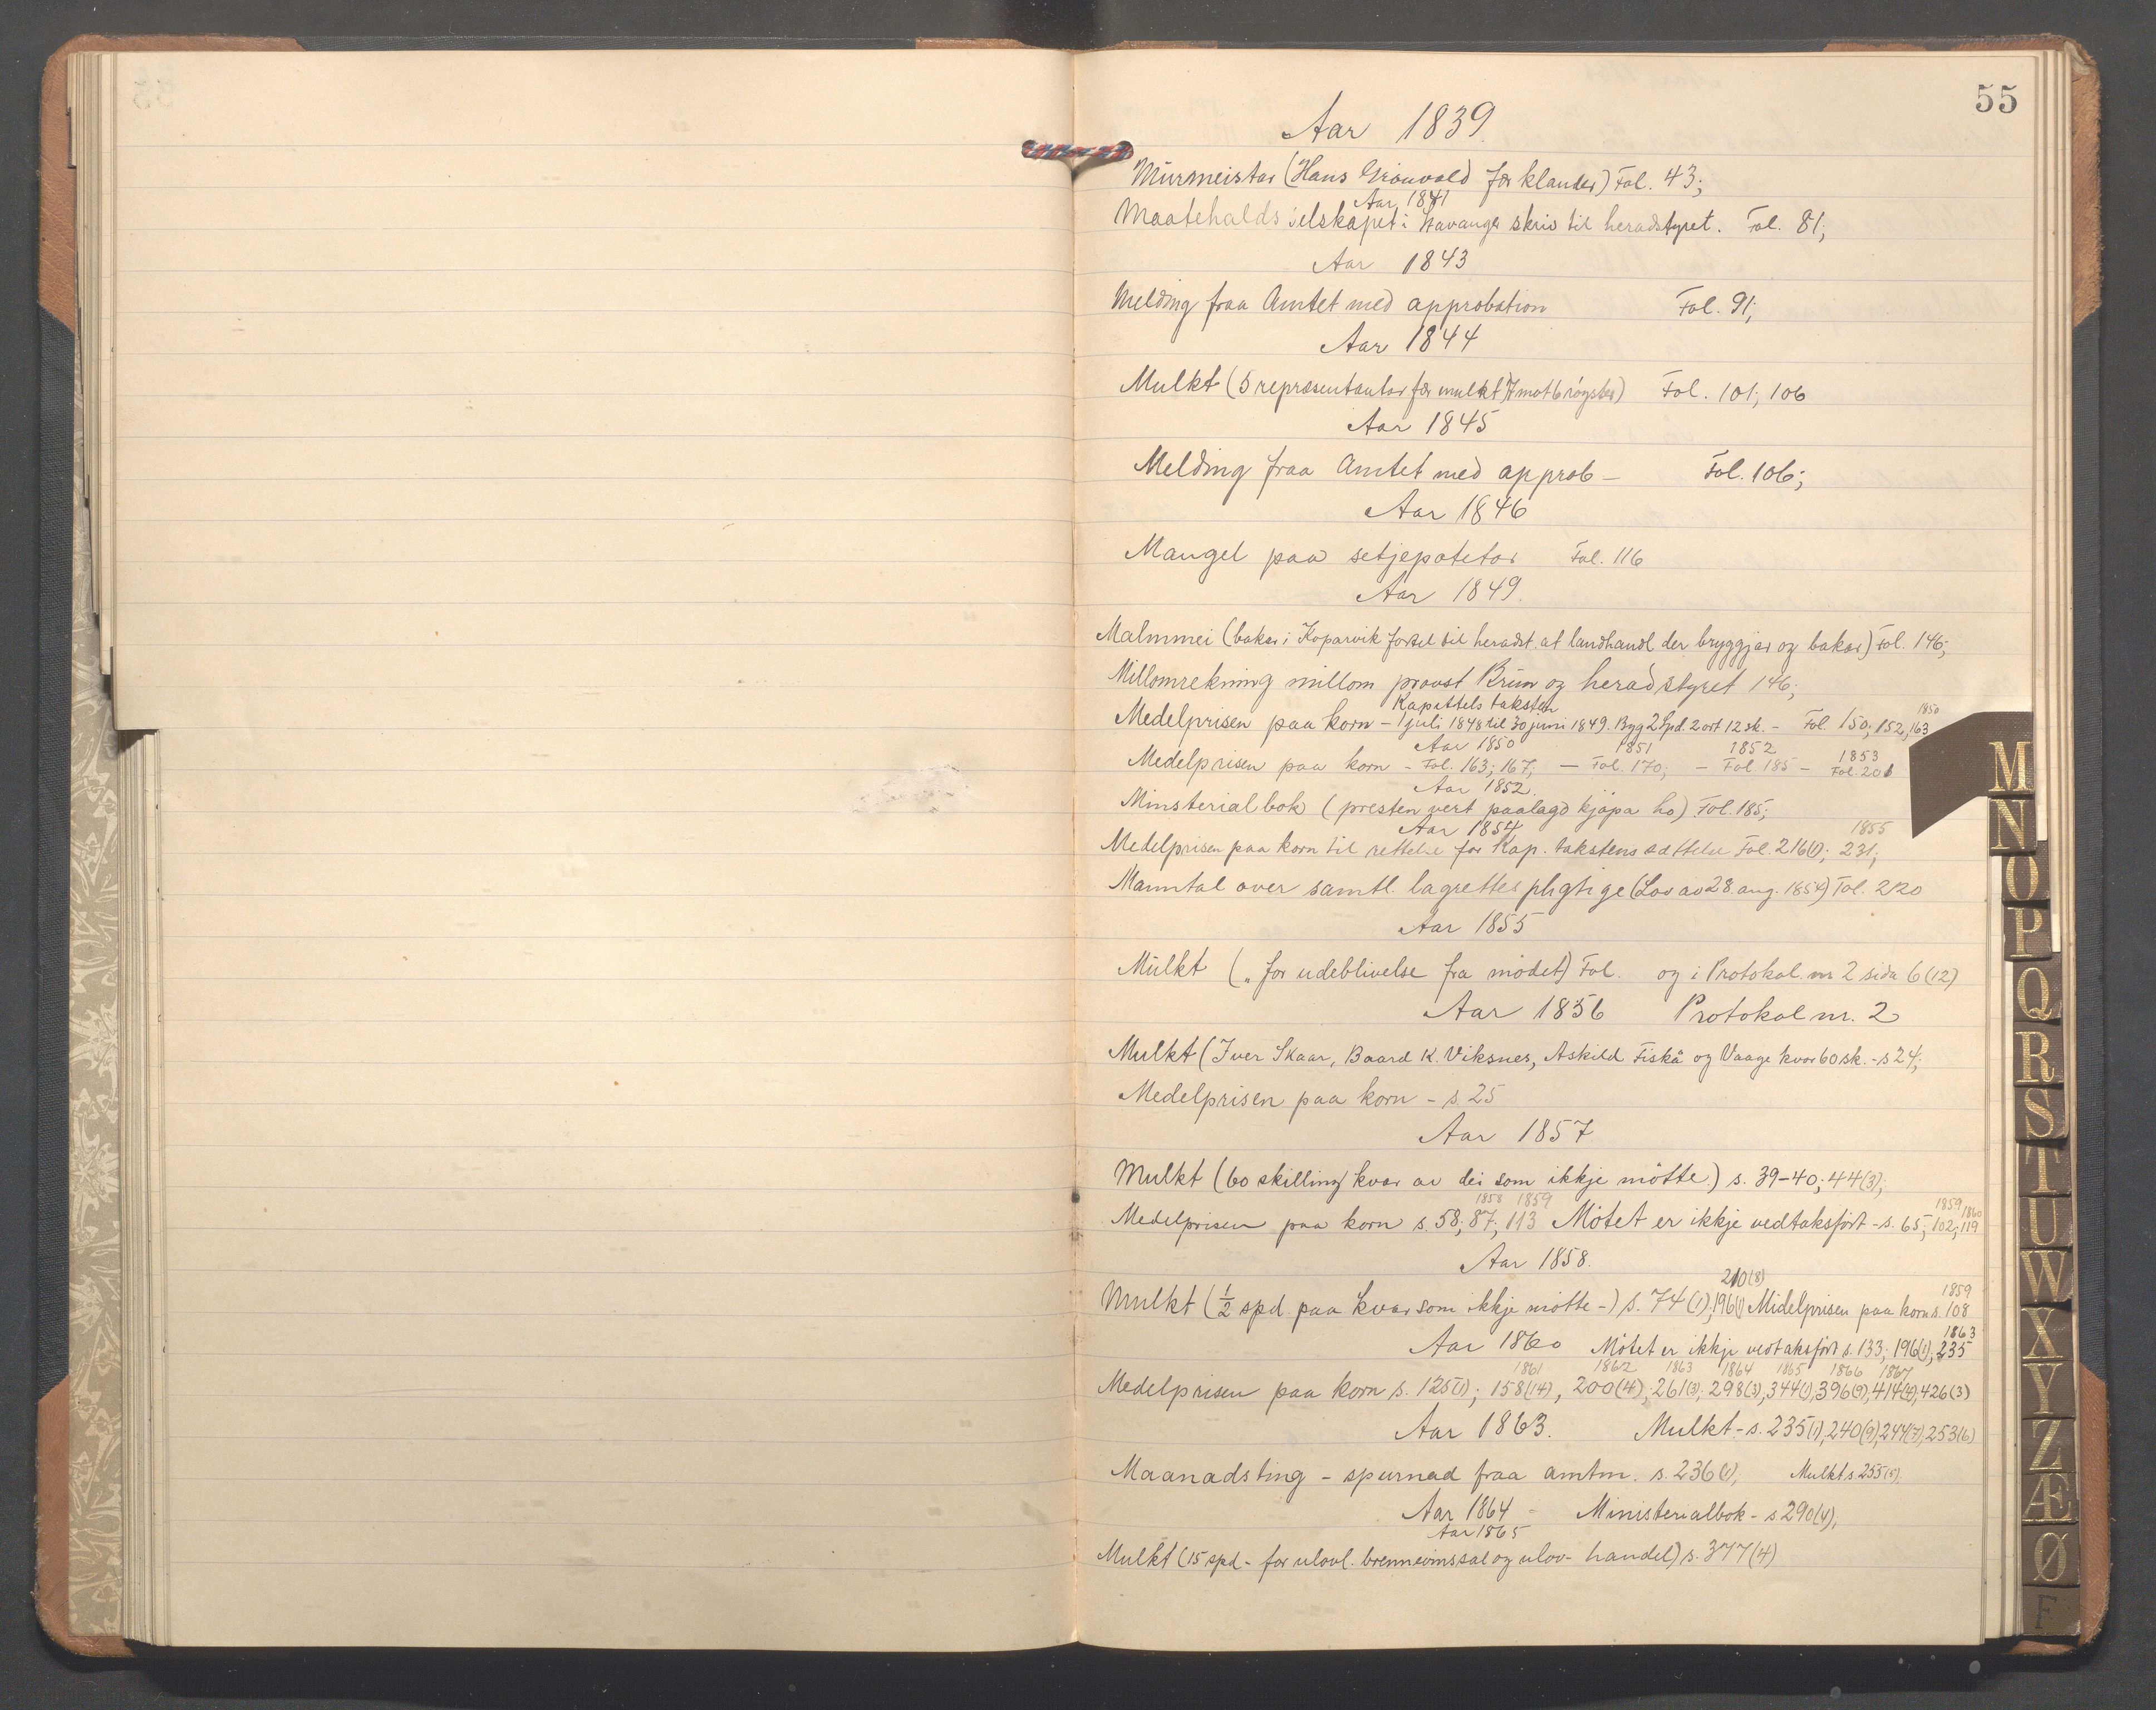 55
Aar 1839
Murmeistar (Hans Grønvold fær klander) Fol. 43;
Aar 1841
Maatehaldsselskapet i Stavanger skriv til heradstyret. Fol. 81;
Aar 1843
Melding fraa Amtet med approbation Fol. 91;
Aar 1844
Mulkt (5 repræsentantar fær mulkt 7 mot 6 røyster) Fol. 101; 106
Aar 1845
Melding fraa Amtet med approb — Fol. 106;
Aar 1846
Mangel paa setjepotetor Fol. 116
Aar 1849.
Malmmei (bakar i Koparvik fortel til heradst. at landhandl der bryggjar og bakar) Fol. 146;
Millomrekning millom provst Brun og heradstyret 146;
Kapittelstaksten 1850
Medelprisen paa korn – 1 juli 1848 til 30 juni 1849. Byg 2 Spd. 2 ort 12 sk. – Fol. 150; 152, 163
Aar 1850 1851 1852 1853
Medelprisen paa korn – Fol. 163; 167; — Fol. 170; – Fol. 185 – Fol. 206
Aar 1852.
Minsterialbok (presten vert paalagd kjøpa ho) Fol. 185;
Aar 1854 1855
Medelprisen paa korn til rettelse for Kap. takstens sættelse Fol. 216(1); 231;
Manntal over samtl. lagrettespligtige (Lov av 28. aug. 1854) Fol. 220
Aar 1855
Mulkt („ for udeblivelse fra mødet) Fol. og i Protokol nr 2 sida 6 (12)
Aar 1856 Protokol nr. 2
Mulkt (Iver Skaar, Baard K. Viksnes, Askild Fiskå og Vaage kvar 60 sk. – s 24;
Medelprisen paa korn – s. 25
Aar 1857
Mulkt (60 skilling kvar av dei som ikkje møtte) s. 39–40; 44(3);
1858 1859 1859 1860
Medelprisen paa korn s. 58; 87; 113 Møtet er ikkje vedtaksført – s. 65; 102; 119
Aar 1858.
210(8) 1859
Mulkt (½ spd. paa kvar som ikkje møtte –) s. 74 (1); 196(1) Midelprisen paa korn s. 108
1863
Aar 1860 Møtet er ikkje vedtaksført s. 133; 196(1); 235
1861 1862 1863 1864 1865 1866 1867
Medelprisen paa korn s. 125(1); 158(14), 200(4); 261(3); 298(3), 344(1), 396(9), 414(4), 426(3)
Aar 1863. Mulkt – s. 235(1), 240(9), 244(7), 253(6)
Maanadsting – spurnad fraa amtm. s. 236(1), Mulkt s 255(5),
Aar 1864 – Ministerialbok – s 290(4),
Aar 1865
Mulkt (15 spd – for ulovl. brennevinssal og ulov– handel) s. 377(4)
M
N
O
P
Q
R
S
T
U
W
X
Y
Z
Æ
Ø
F